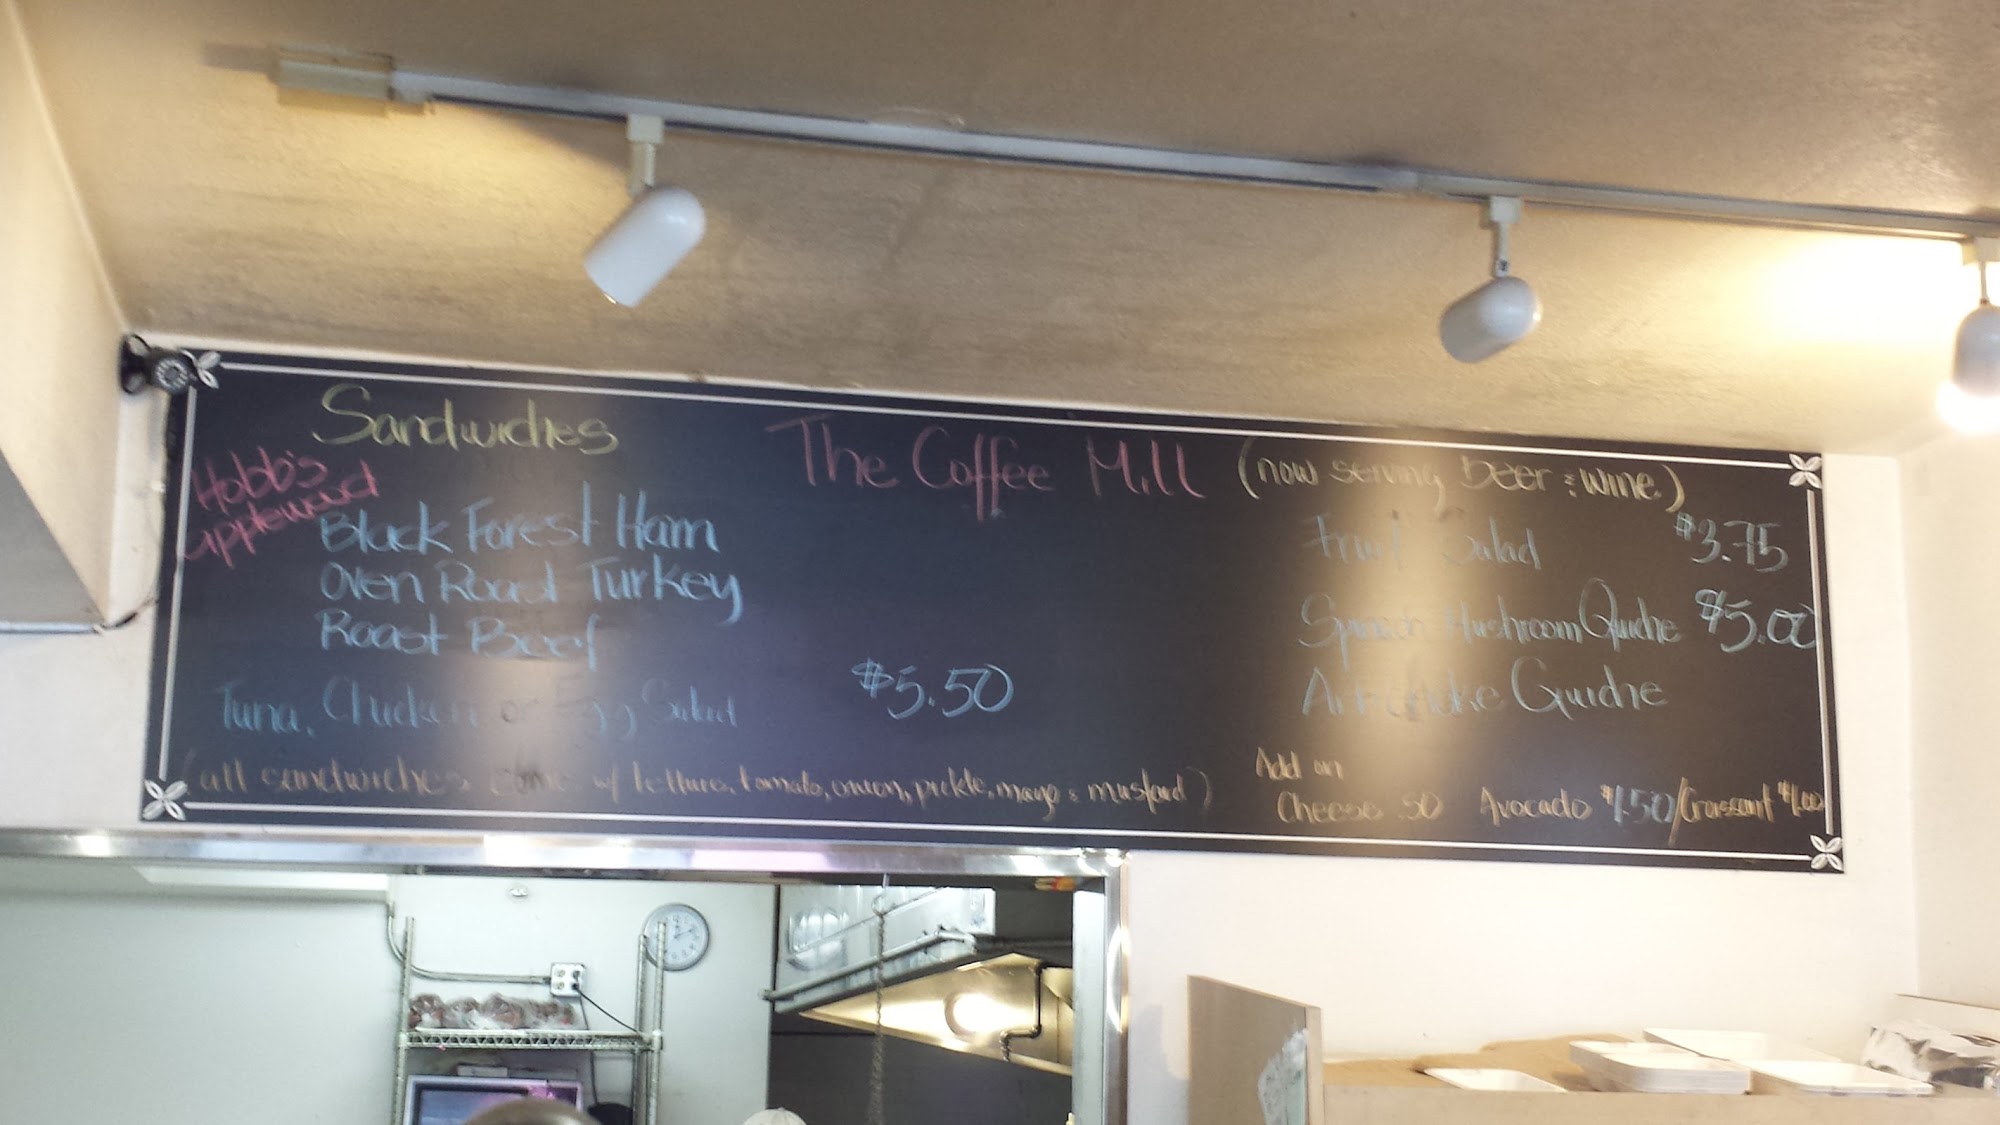 Sandwiches
The Coffee Mill (now serving beer & wine)
Hobb's
applewood
Black Forest Ham
Oven Roast Turkey
Roast Beef
Tuna, Chicken or Egg Salad
$5.50
(all sandwiches come w/ lettuce, tomato, onion, pickle, mayo & mustard)
Fruit Salad $3.75
Spinach Mushroom Quiche $5.00
Artichoke Quiche
Add on
Cheese .50 Avocado $1.50/Croissant $1.00